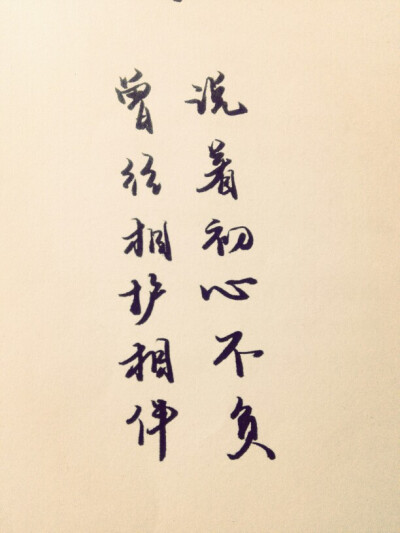 说着初心不负
曾经相护相伴